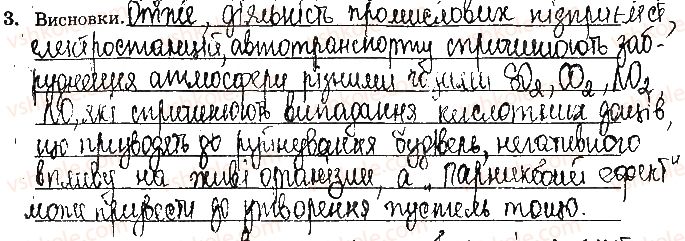 3. Висновки. Отже, діяльність промислових підприємств
електростанцій, автотранспорту спричиняють заб-
руднення атмосфери різними SO2, CO2, NO2,
NO, які спричиняють випадання кислотних дощів,
що призводять до руйнування будівель, негативного
впливу на живі організми, а „парниковий ефект"
може призвести до утворення пустель тощо.